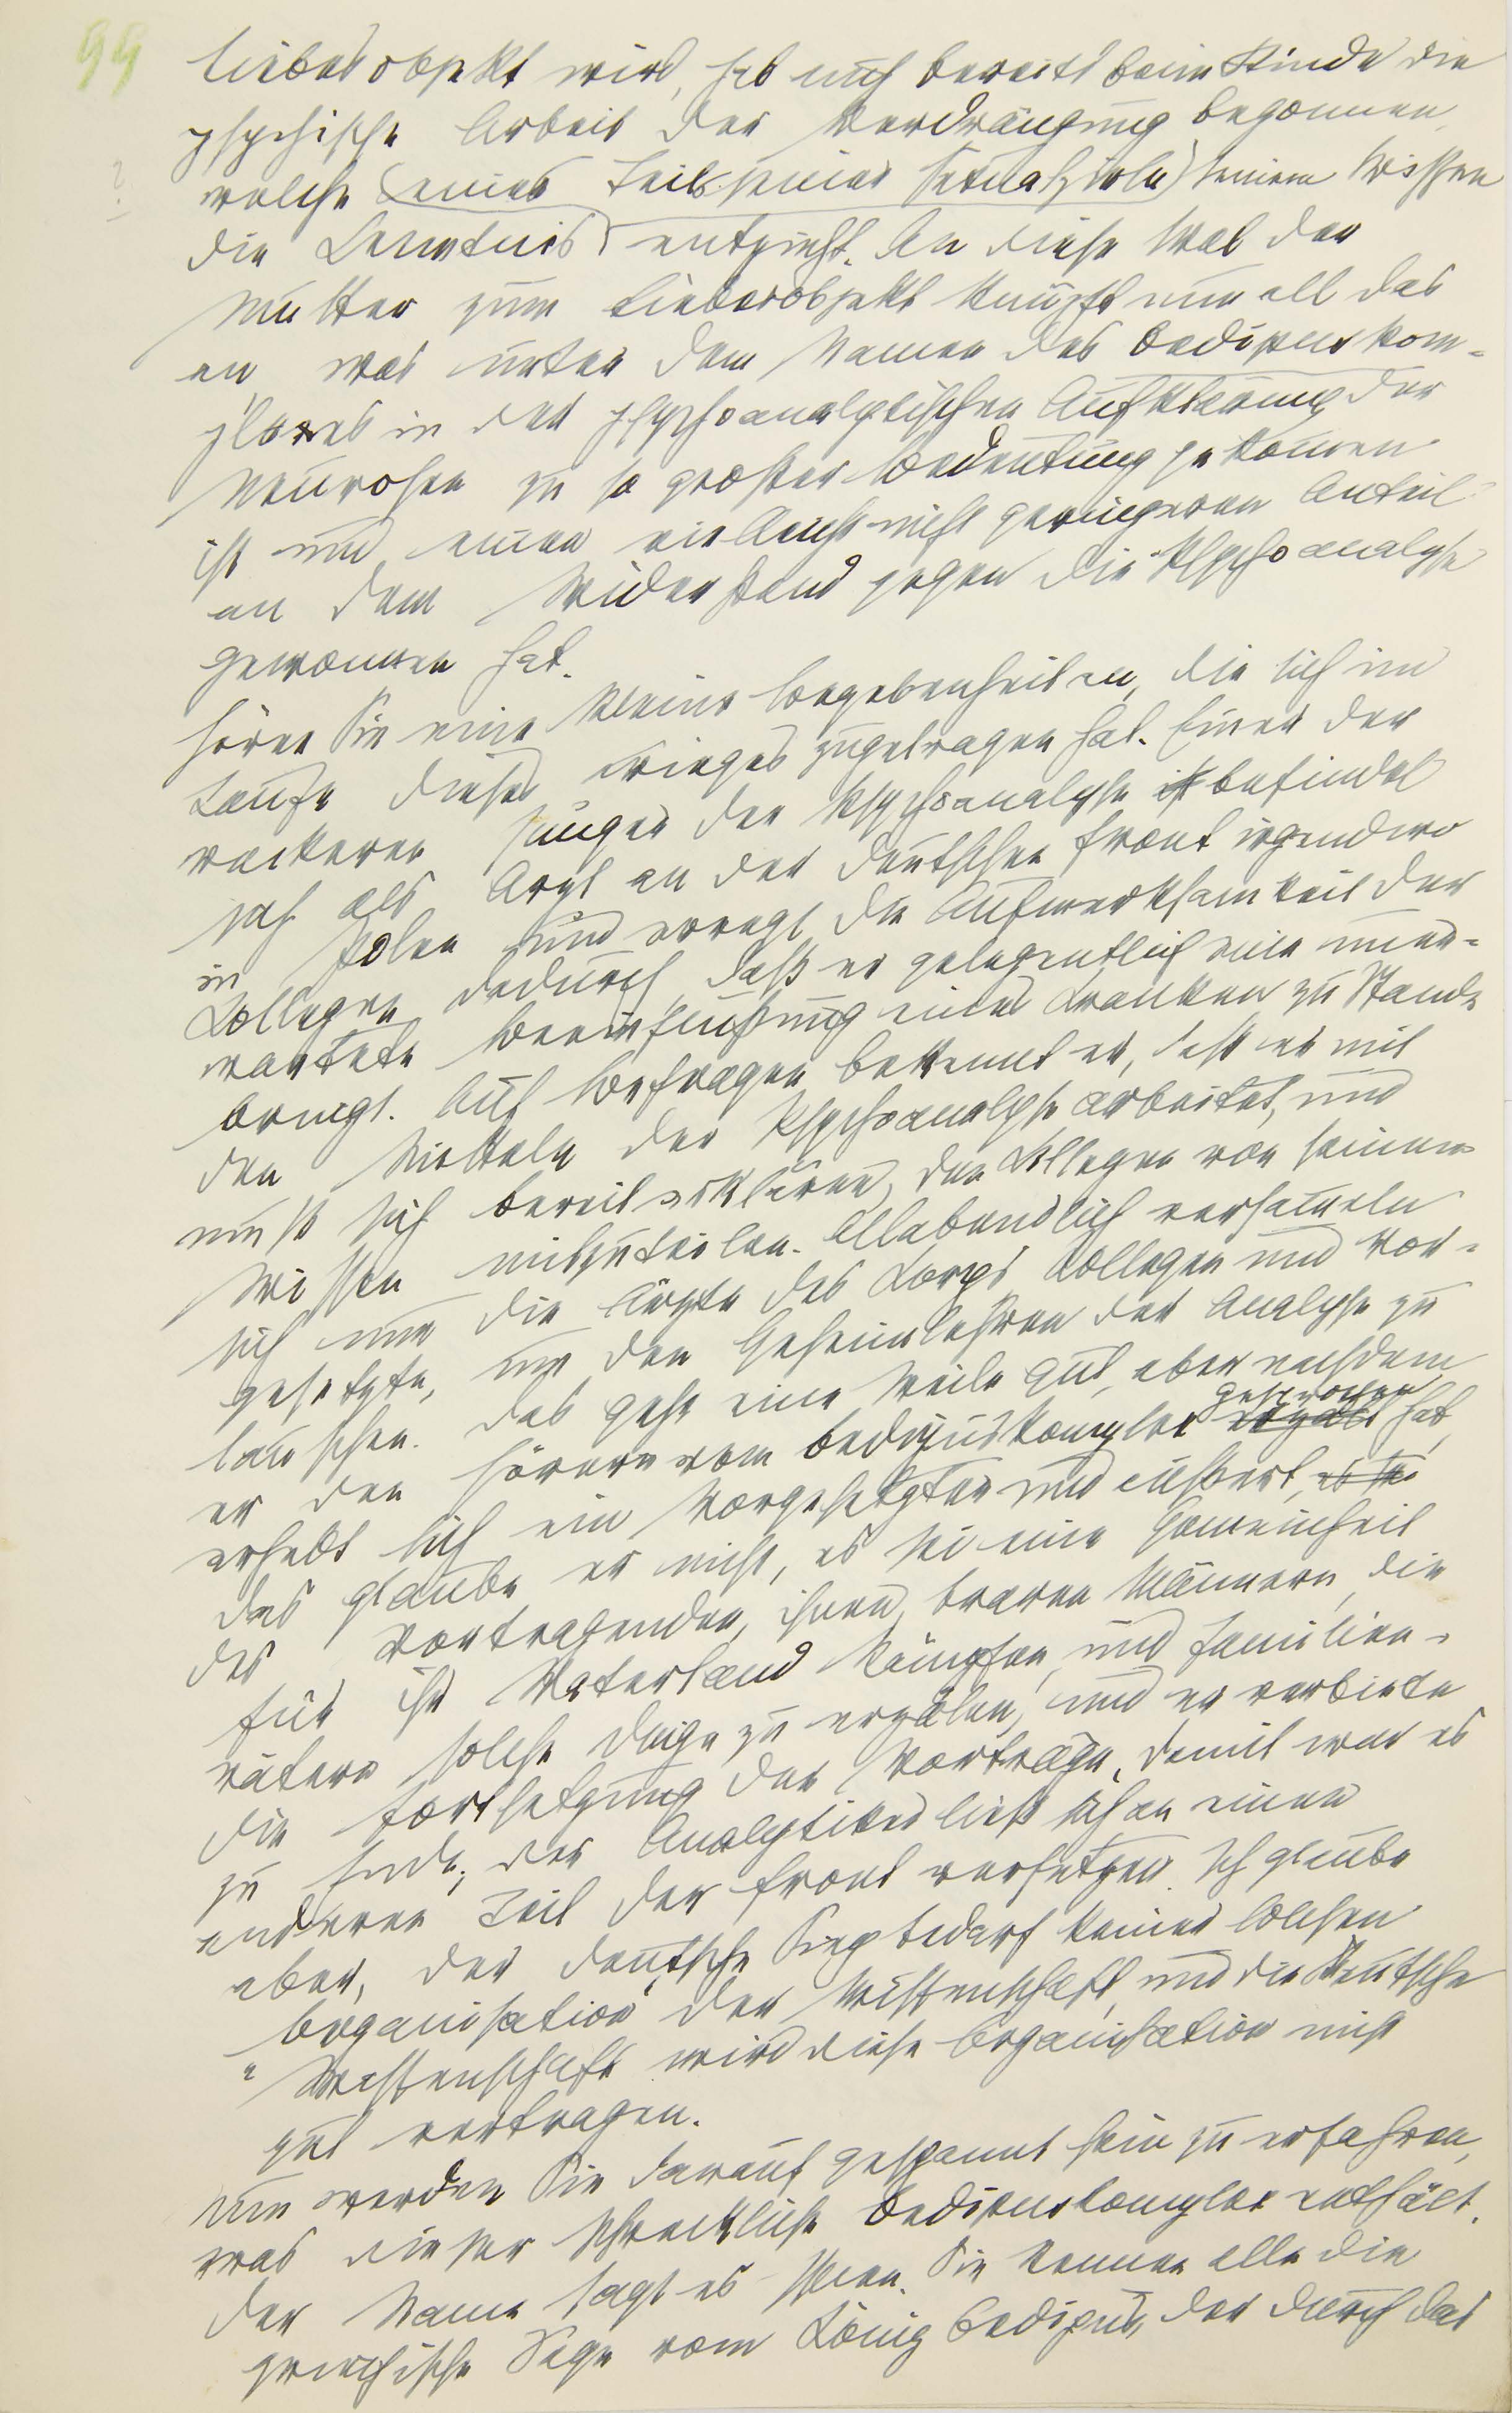 99
Liebesobjekt wird, hat auch bereits beim Kinde die
psychische Arbeit der Verdrängung begonnen,
welche (eines Teils seiner Sexualziele) seinem Wissen
die Kenntnis entzieht. An diese Wal der
Mutter zum Liebesobjekt knüpft nun all das
an was unter dem Namen des Oedipuskom-
plexes in der psychoanalytischen Aufklärung der
Neurosen zu so großer Bedeutung gekommen
ist und einen vielleicht nicht geringeren Anteil
an dem Widerstand gegen die Psychoanalyse
gewonnen hat.
Hören Sie eine kleine Begebenheit an, die sich im
Laufe dieses Krieges zugetragen hat. Einer der
wackeren Jünger der Psychoanalyse ist befindet
sich als Arzt an der deutschen Front irgendwo
in Polen und erregt die Aufmerksamkeit der
Kollegen dadurch, daß er gelegentlich eine uner-
wartete Beeinflußung eines Kranken zu Stande
bringt. Auf Befragen bekennt er, daß er mit
den Mitteln der Psychoanalyse arbeitet, und
muß sich bereit erklären, den Kollegen von seinem
Wissen mitzuteilen. Allabendlich versammeln
sich nun die Ärzte des Korps, Kollegen und Vor-
gesetzte, um den Geheimlehren der Analyse zu
lauschen. Das geht eine Weile gut, aber nachdem
gesprochen
er den Hörern vom Oedipuskomplex erzält hat,
erhebt sich ein Vorgesetzter und äußert, es sei
das glaube er nicht, es sei eine Gemeinheit
des Vortragenden, ihnen, braven Männern, die
für ihr Vaterland kämpfen, und Familien-
vätern solche Dinge zu erzälen, und er verbiete
die Fortsetzung der Vorträge. Damit war es
zu Ende; der Analytiker ließ sich an einen
anderen Teil der Front versetzen. Ich glaube
aber, der deutsche Sieg bedarf keiner solchen
Organisation der Wissenschaft, und die deutsche
Wissenschaft wird diese Organisation nicht
gut vertragen.
Nun werden Sie darauf gespannt sein zu erfahren,
was dieser schreckliche Oedipuskomplex enthält.
Der Name sagt es Ihnen. Sie kennen alle die
griechische Sage vom König Oedipus, der durch das